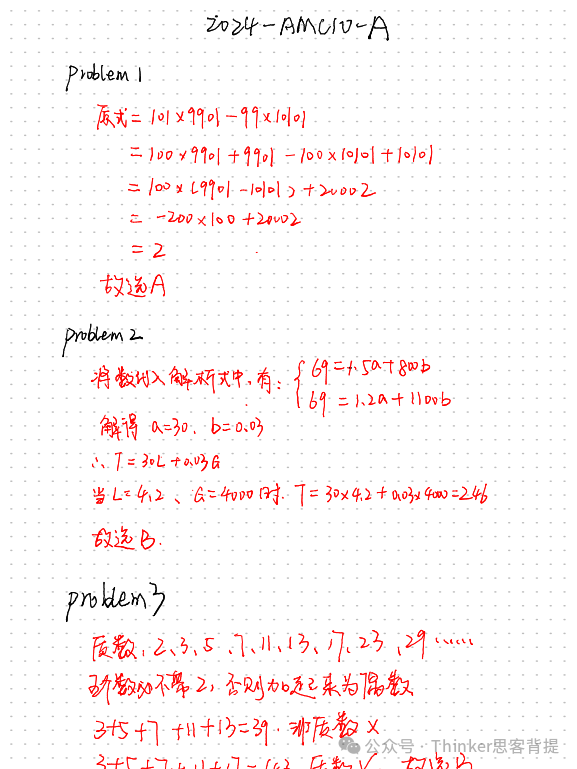 2024-AMC10-A
problem 1
原式=101×9901-99×10101
=100×9901+9901-100×10101+10101
=100×(9901-10101)+20002
=-200×100+20002
=2
故选A
problem 2
将数代入解析式中,有: {69=1.5a+800b
69=1.2a+1100b
解得 a=30. b=0.03
∴ T=30L+0.03G
当L=4.2、G=4000时. T=30×4.2+0.03×4000=246
故选B.
problem 3
质数:2、3、5、7、11、13、17、23、29……
5个数必不带2,否则加起来为偶数
3+5+7+11+13=39. 非质数×
公众号·Thinker思客背提
3+5+7+11+17=43 质数√ 故选B